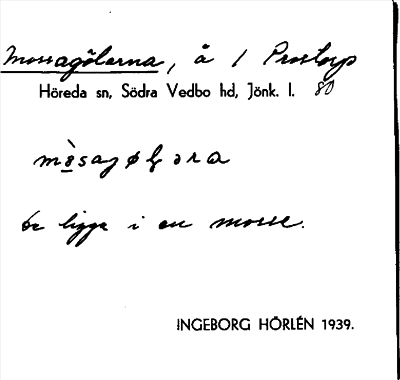 Mossagölarna, å / Prostorp
Höreda sn, Södra Vedbo hd, Jönk. l. 80
mo̱̊sagøɫara
De ligga i en mosse.
INGEBORG HÖRLÉN 1939.